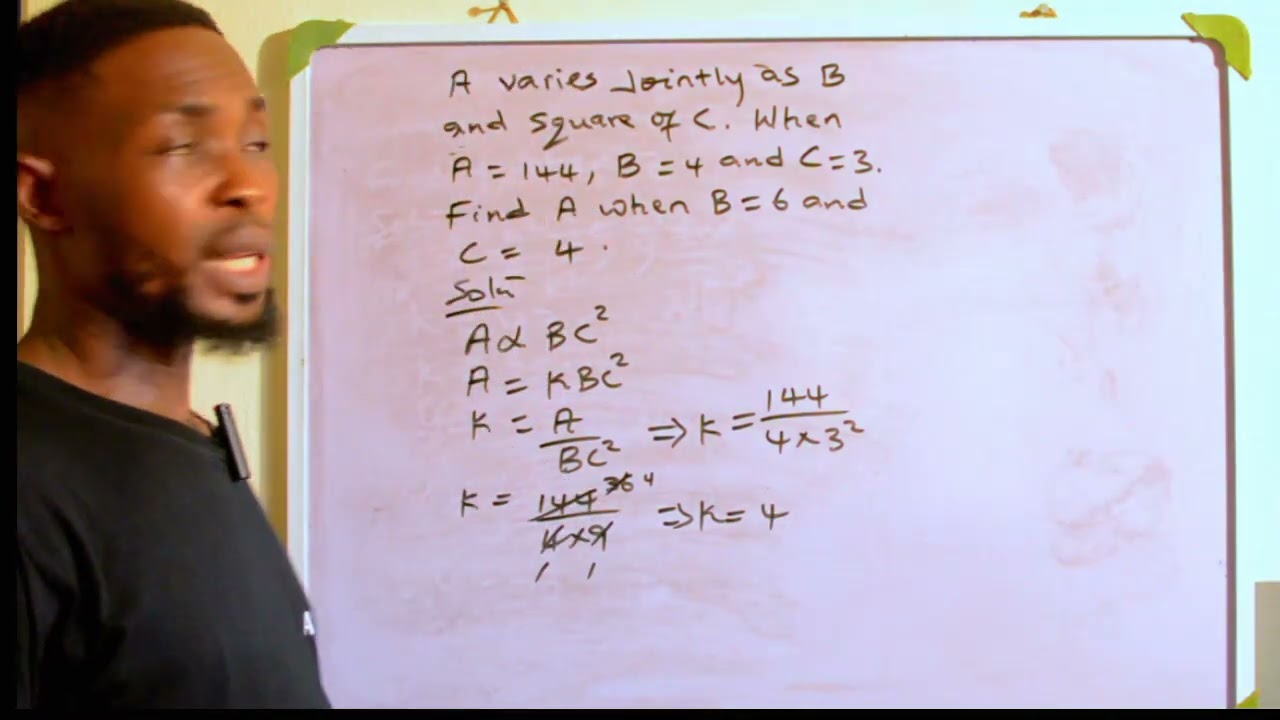 A varies Jointly as B
and square of C. When
A = 144, B = 4 and C = 3.
Find A when B = 6 and
C = 4.
Soln
A ∝ BC²
A = KBC²
K = A/BC² ⇒ K = 144/4×3²
K = 144 36 4/4×9 ⇒ K = 4
1 1
A